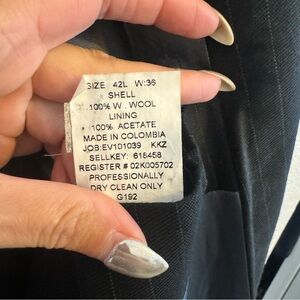 SIZE 42L W:36
SHELL
100% W. WOOL
LINING
100% ACETATE
MADE IN COLOMBIA
JOB:EV101039 KKZ
SELLKEY: 618458
REGISTER # 02K005702
PROFESSIONALLY
DRY CLEAN ONLY
G192